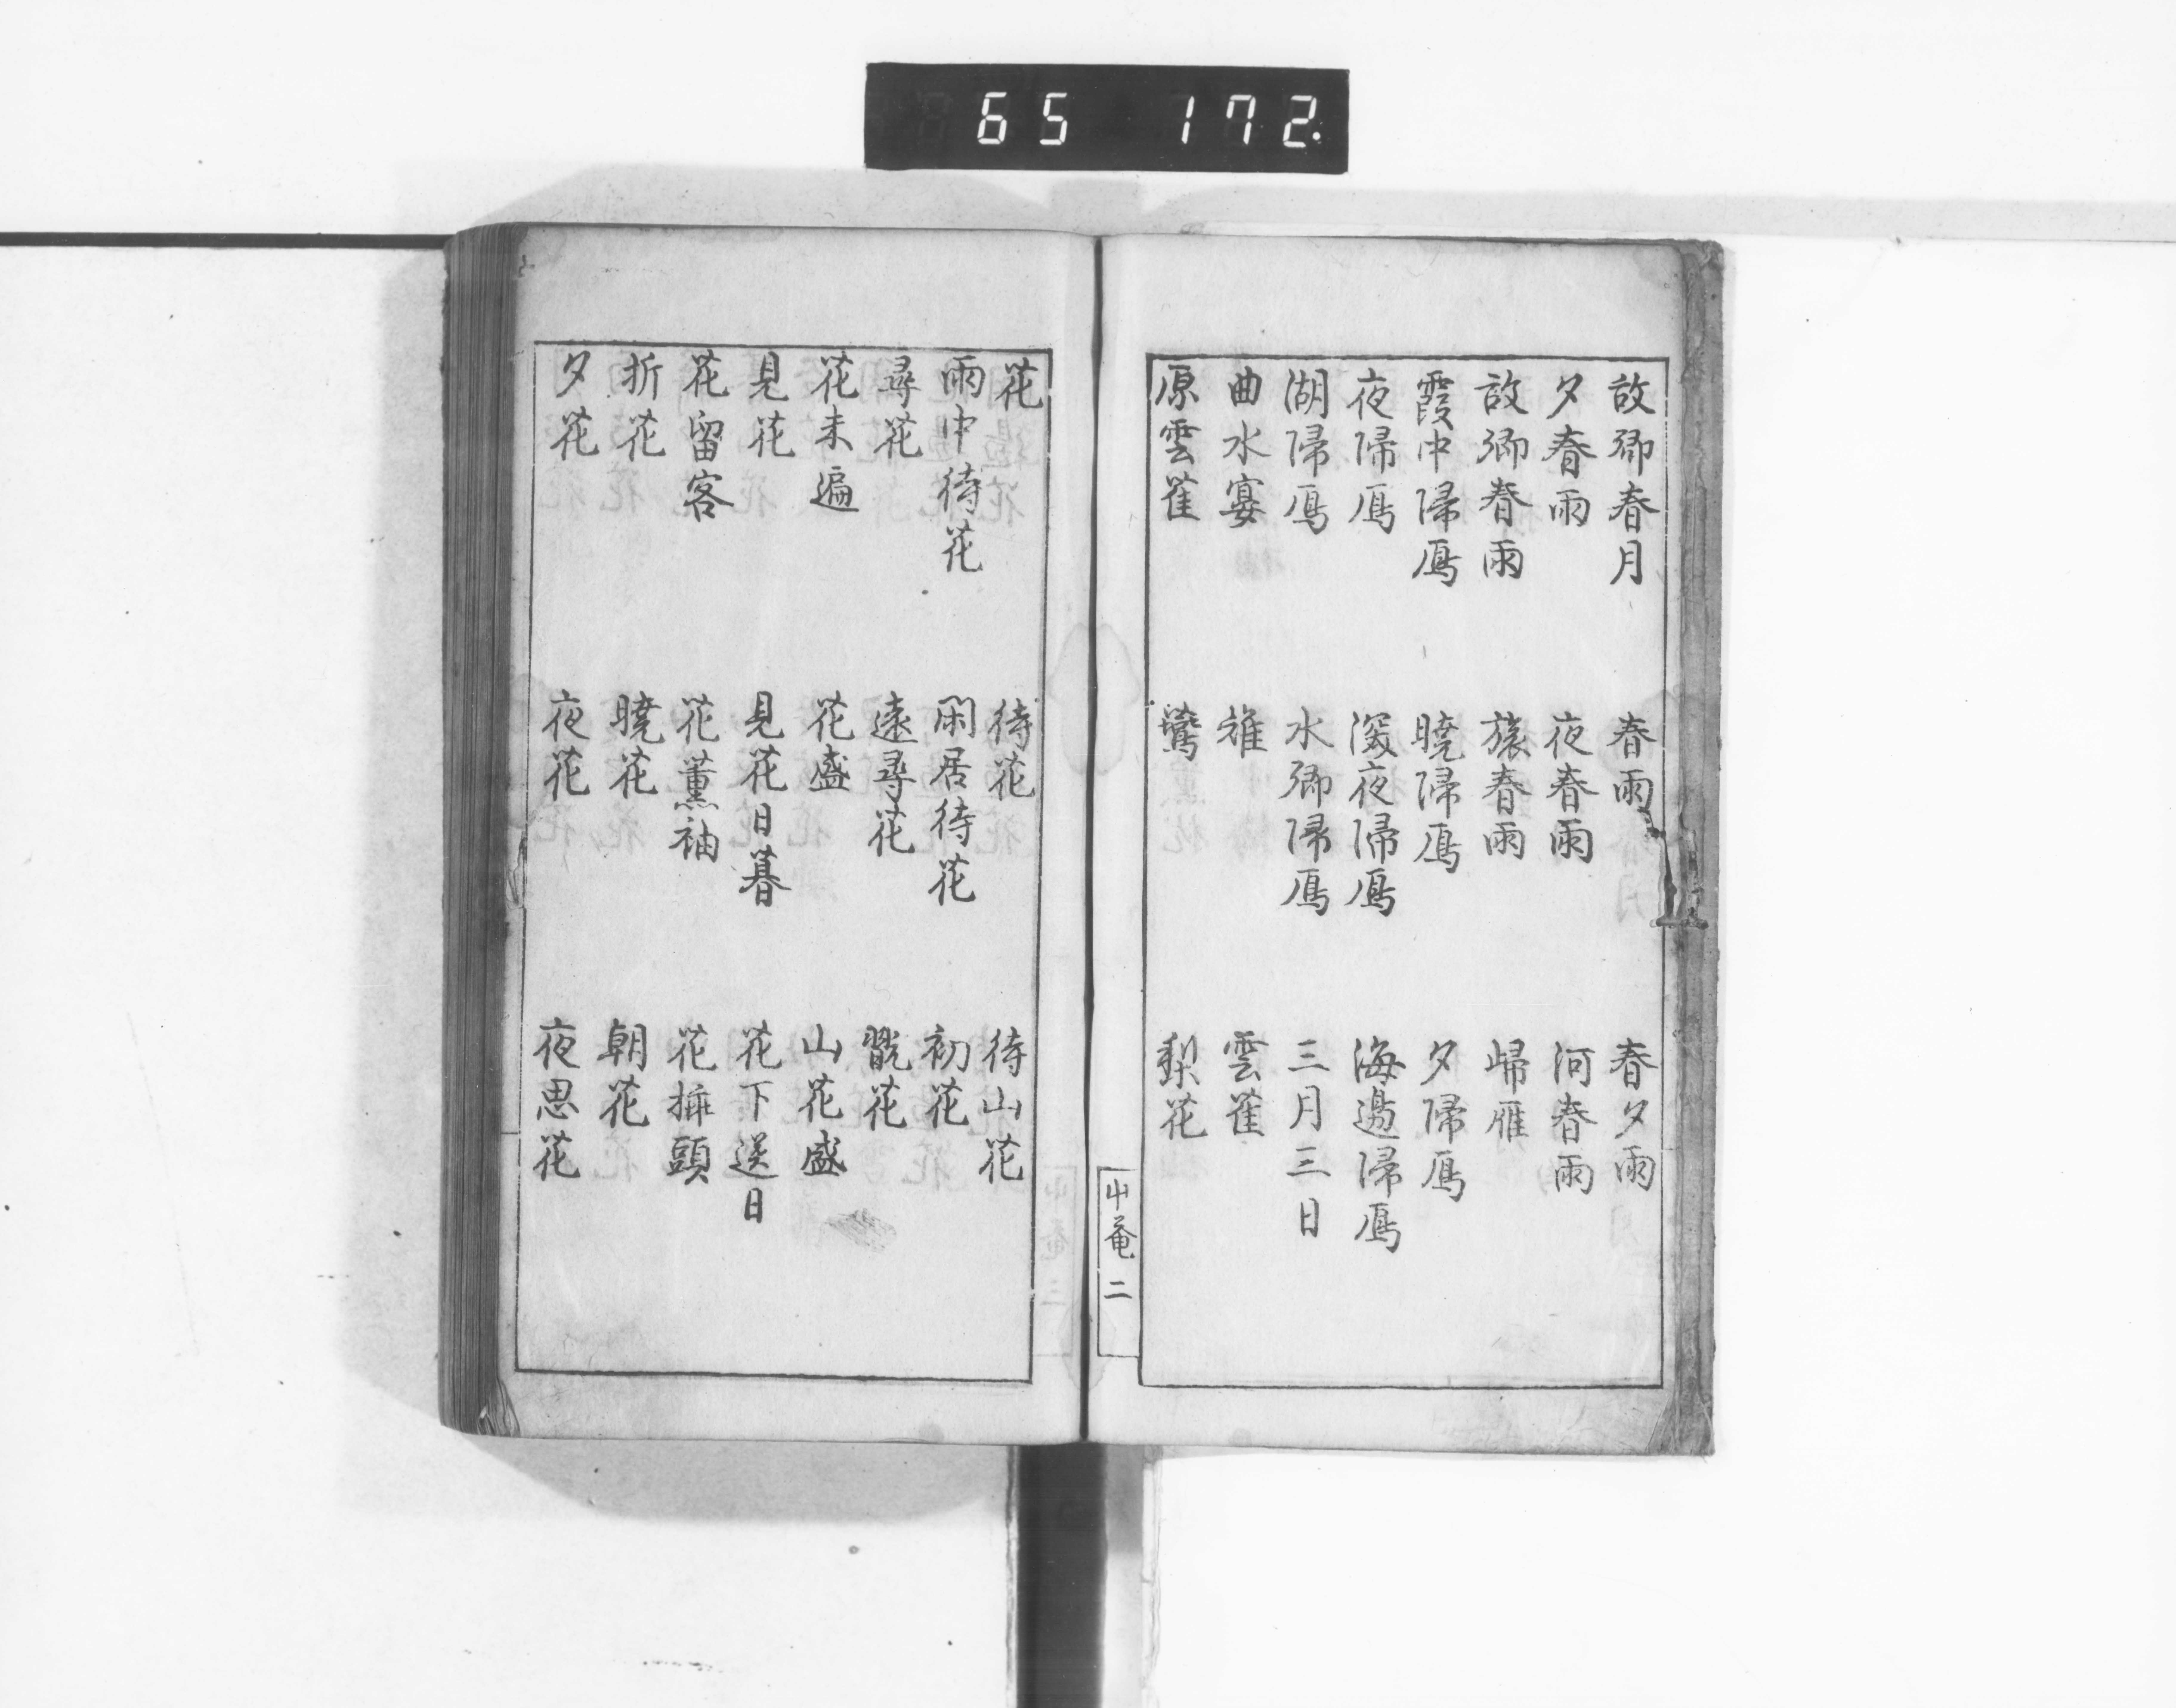 65 172.
故郷春月 春雨 春夕雨
夕春雨 夜春雨 河春雨
故郷春雨 旅春雨 帰雁
霞中帰鴈 暁帰鴈 夕帰鴈
夜帰鴈 深夜帰鴈 海邊帰鴈
湖帰鴈 水郷帰鴈 三月三日
曲水宴 雉 雲雀
原雲雀 鶯 梨花
中菴 二
花 待花 待山花
雨中待花 閑居待花 初花
尋花 遠尋花 翫花
花未遍 花盛 山花盛
見花 見花日暮 花下送日
花留客 花薫袖 花挿頭
折花 暁花 朝花
夕花 夜花 夜思花